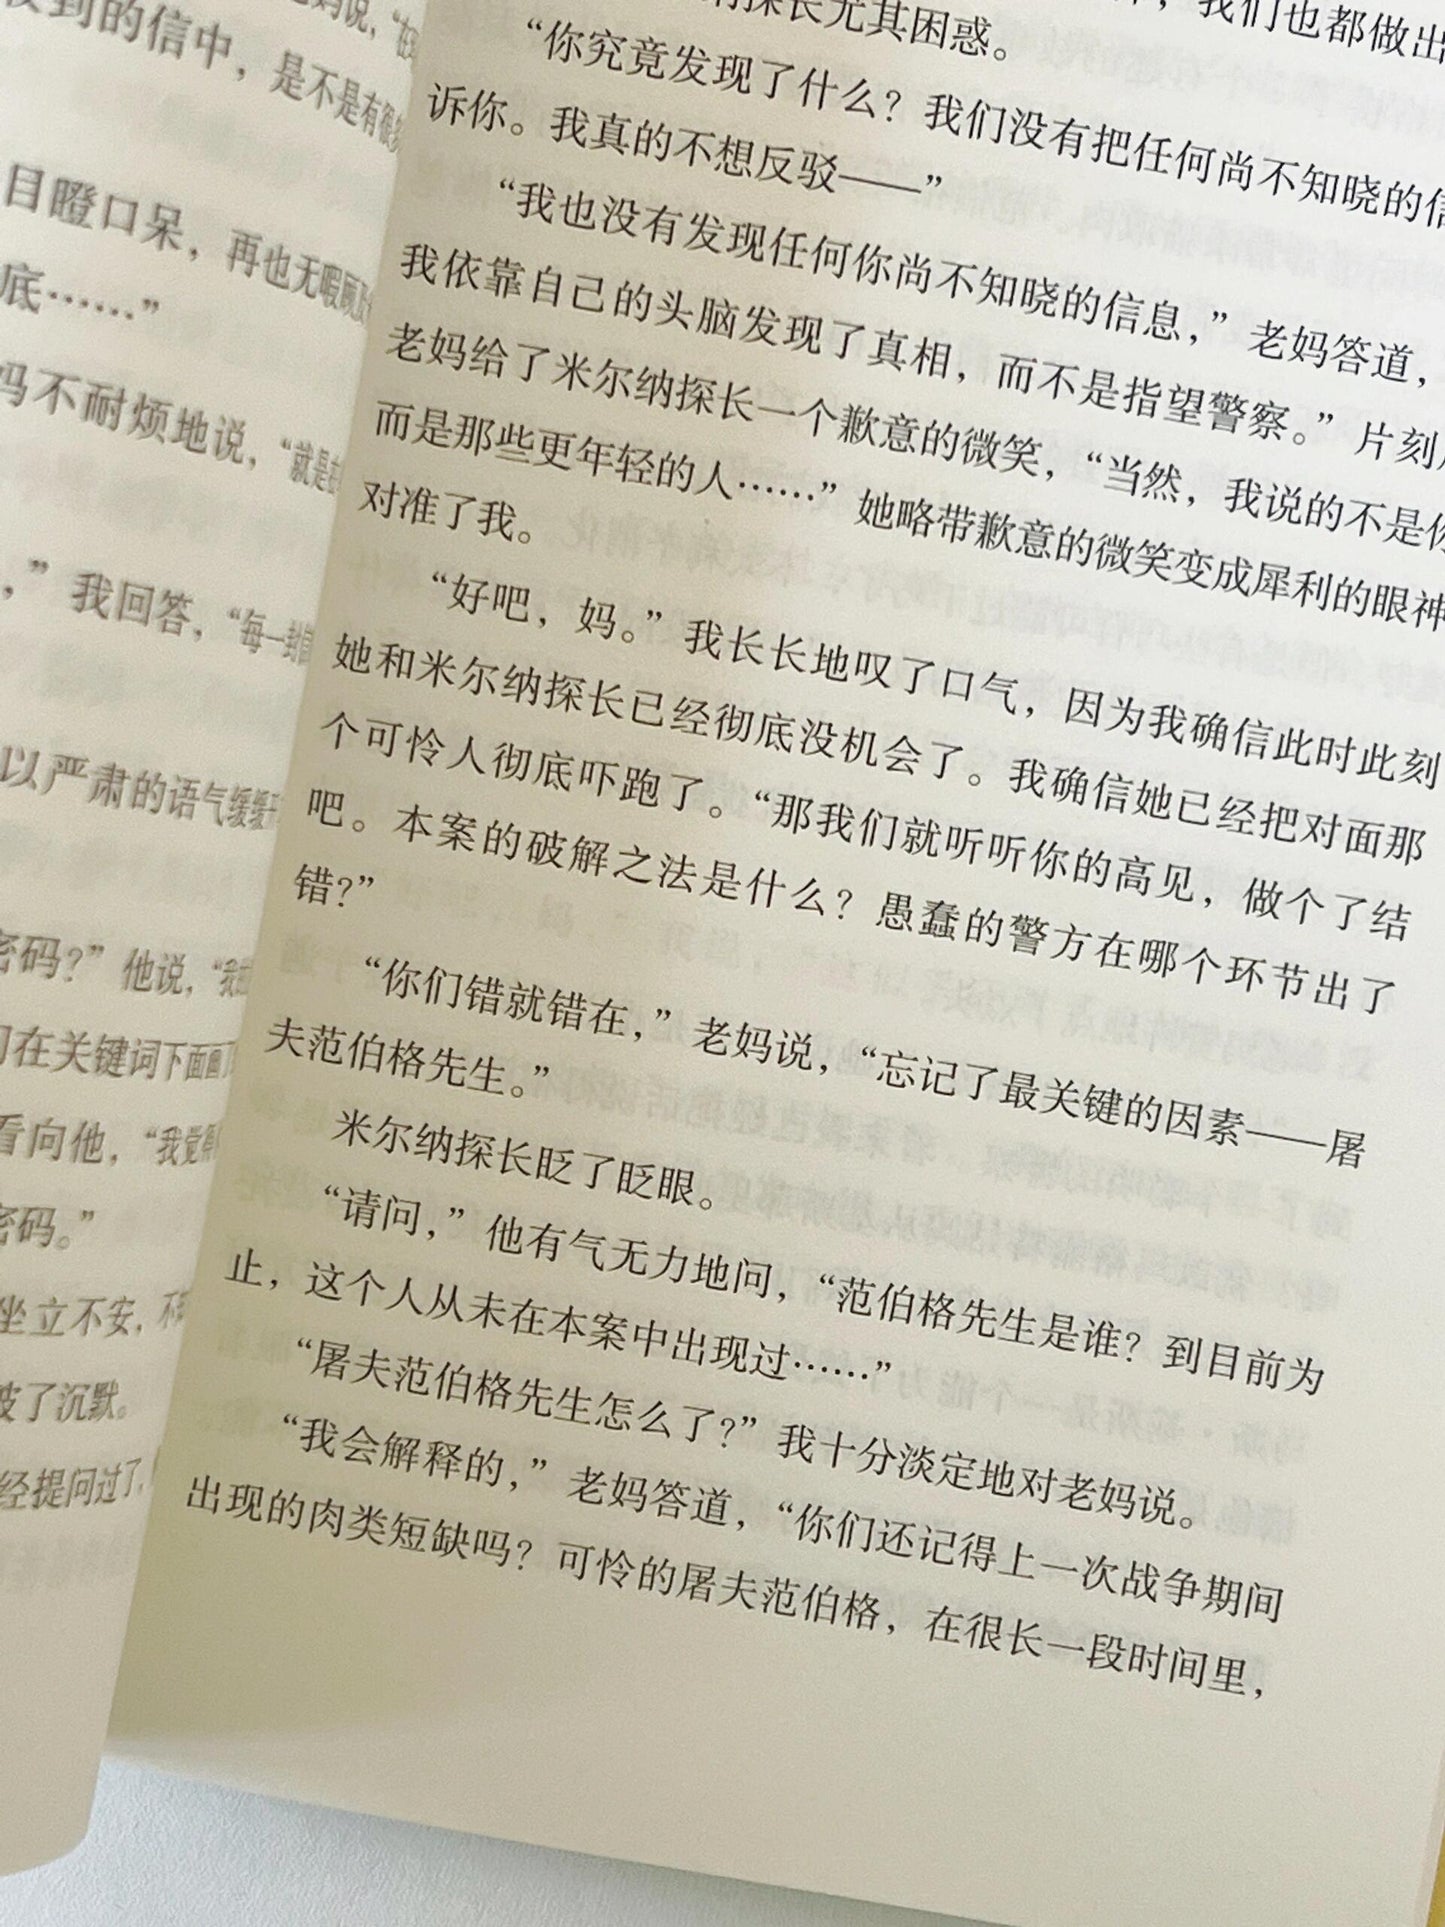 收到的信中，是不是有很
目瞪口呆，再也无暇顾及
底……”
妈不耐烦地说，“就是在
，”我回答，“每一封信
以严肃的语气缓缓开
密码？”他说，“我
们在关键词下面画
看向他，“我觉得
密码。”
坐立不安，不
破了沉默。
经提问过了，
我们也都做出
探长尤其困惑。
“你究竟发现了什么？我们没有把任何尚不知晓的信
诉你。我真的不想反驳——”
“我也没有发现任何你尚不知晓的信息，”老妈答道，
我依靠自己的头脑发现了真相，而不是指望警察。”片刻
老妈给了米尔纳探长一个歉意的微笑，“当然，我说的不是你
而是那些更年轻的人……”她略带歉意的微笑变成犀利的眼神
对准了我。
“好吧，妈。”我长长地叹了口气，因为我确信此时此刻
她和米尔纳探长已经彻底没机会了。我确信她已经把对面那
个可怜人彻底吓跑了。“那我们就听听你的高见，做个了结
吧。本案的破解之法是什么？愚蠢的警方在哪个环节出了
错？”
“你们错就错在，”老妈说，“忘记了最关键的因素——屠
夫范伯格先生。”
米尔纳探长眨了眨眼。
“请问，”他有气无力地问，“范伯格先生是谁？到目前为
止，这个人从未在本案中出现过……”
“屠夫范伯格先生怎么了？”我十分淡定地对老妈说。
“我会解释的，”老妈答道，“你们还记得上一次战争期间
出现的肉类短缺吗？可怜的屠夫范伯格，在很长一段时间里，